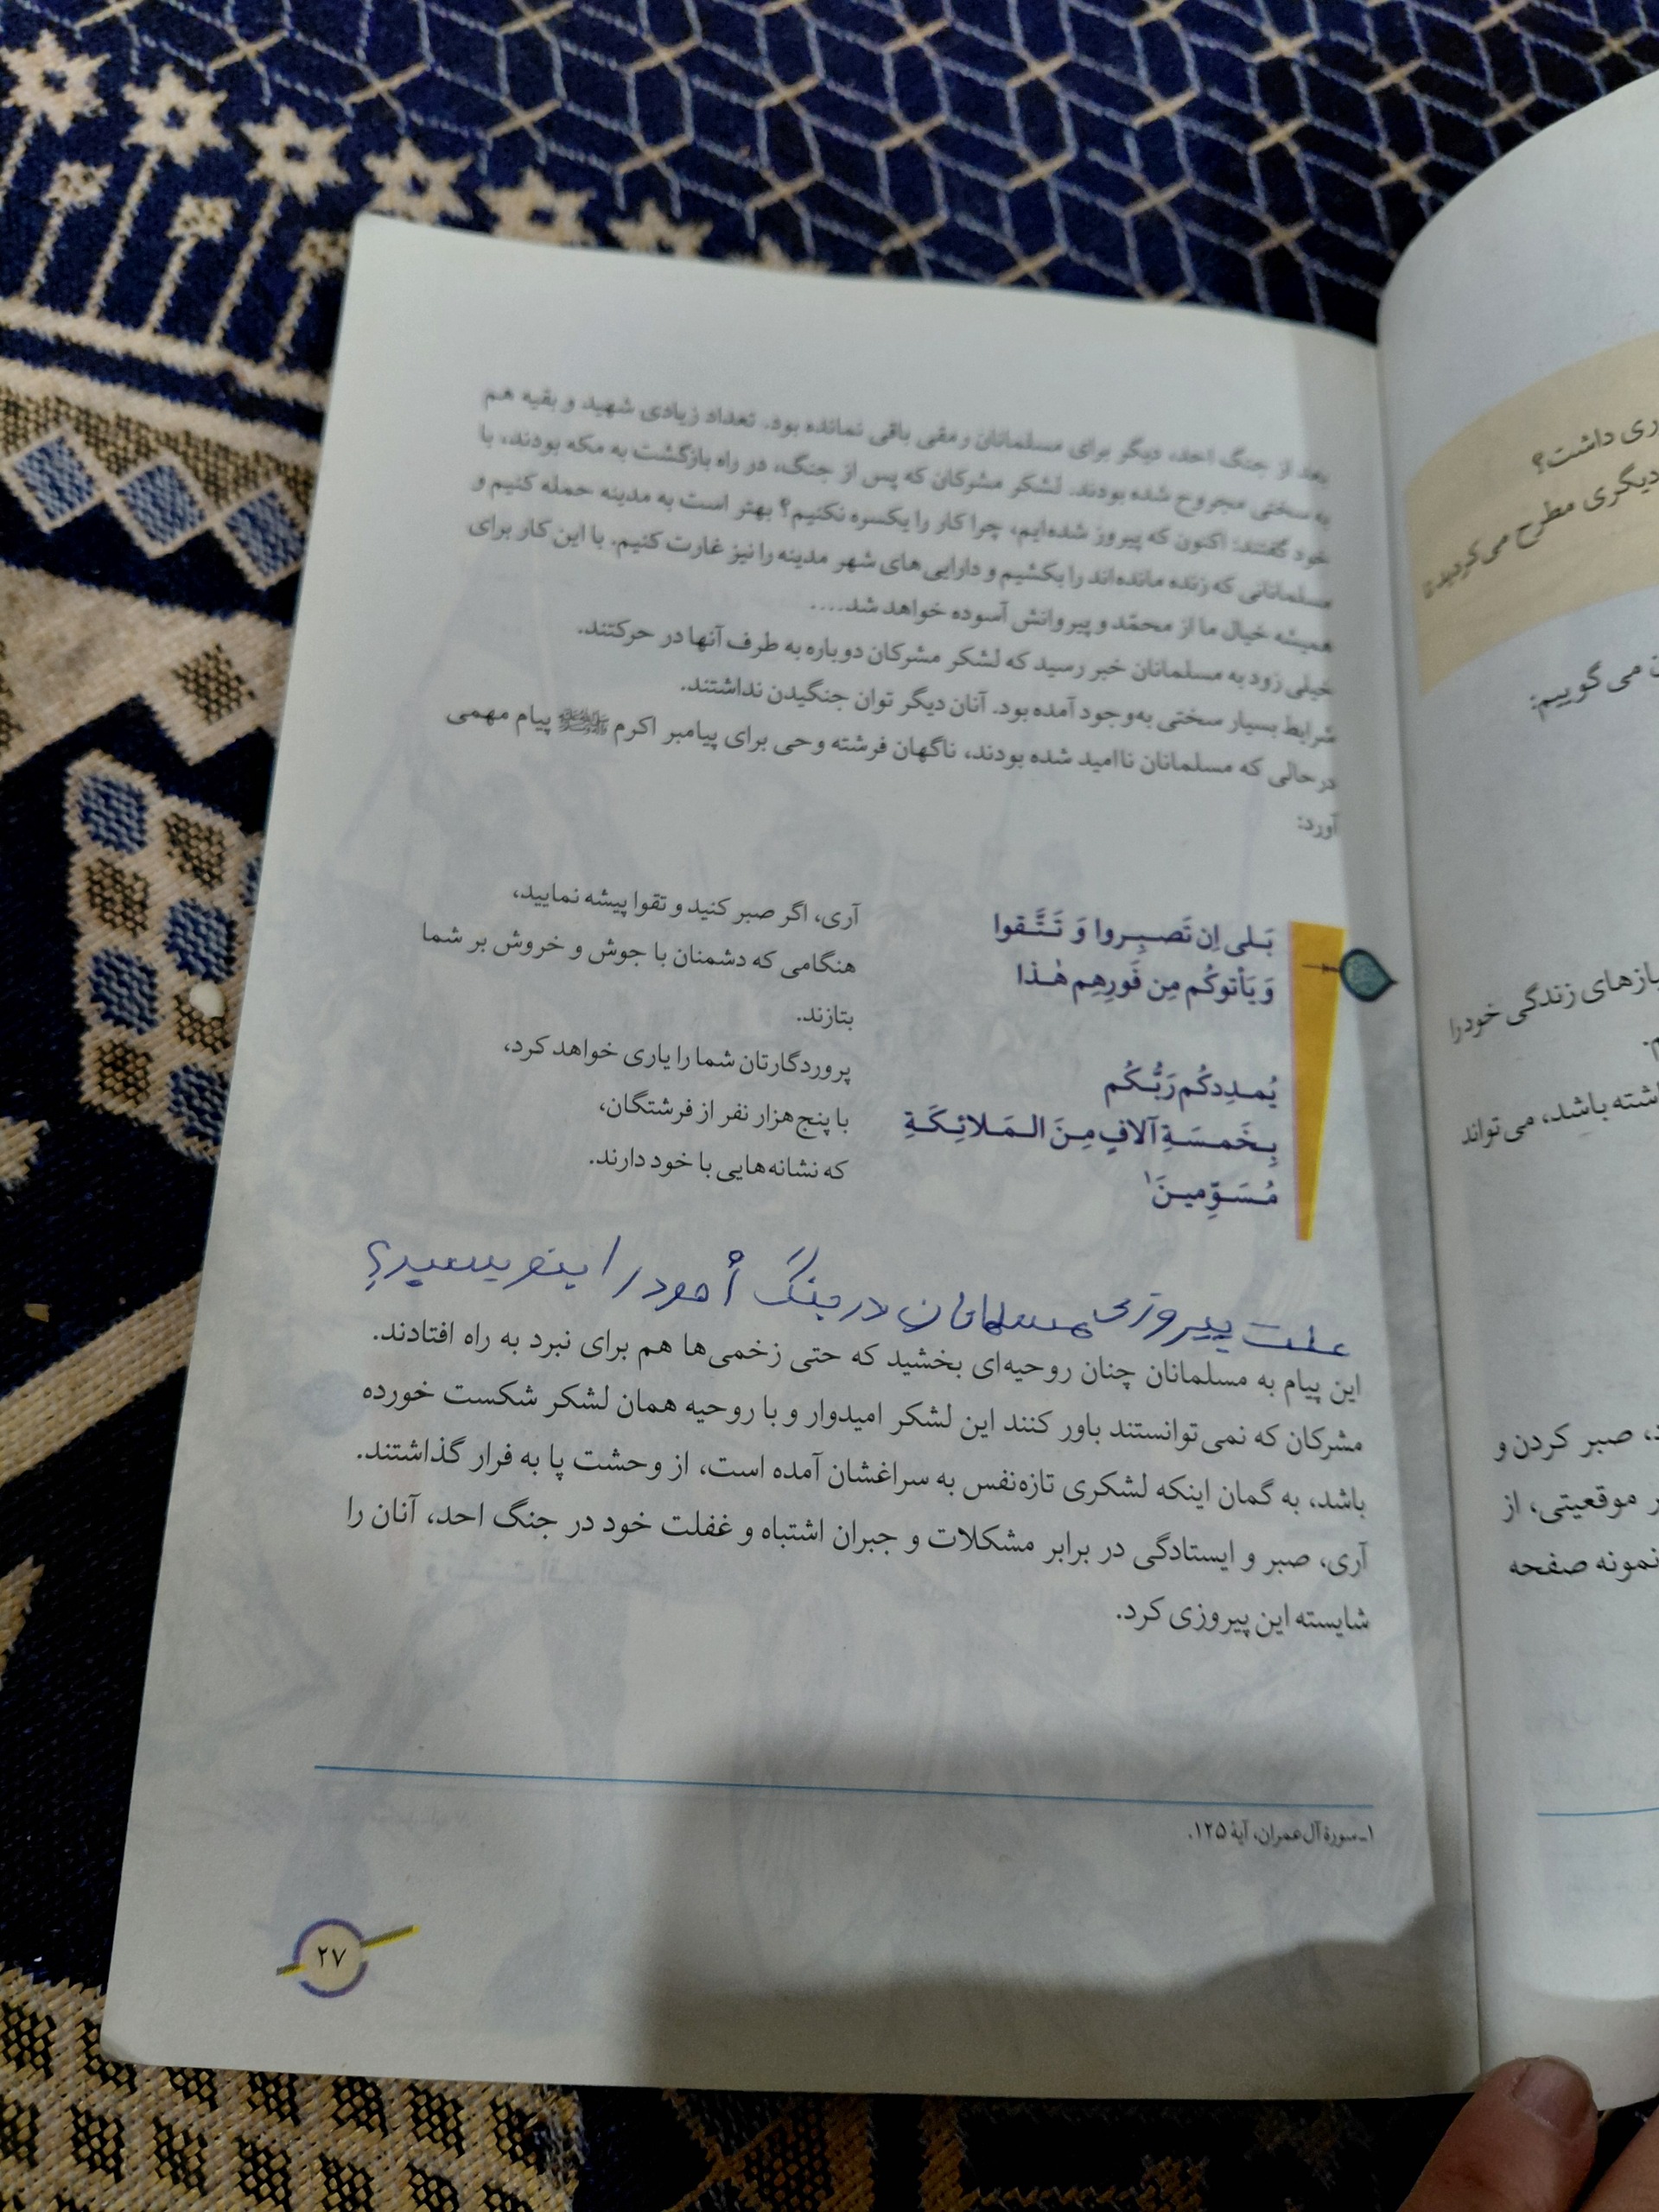 بعد از جنگ احد، دیگر برای مسلمانان رمقی باقی نمانده بود. تعداد زیادی شهید و بقیه هم
به سختی مجروح شده بودند. لشکر مشرکان که پس از جنگ، در راه بازگشت به مکه بودند، با
خود گفتند: اکنون که پیروز شده‌ایم، چرا کار را یکسره نکنیم؟ بهتر است به مدینه حمله کنیم و
مسلمانانی که زنده مانده‌اند را بکشیم و دارایی‌های شهر مدینه را نیز غارت کنیم. با این کار برای
همیشه خیال ما از محمّد و پیروانش آسوده خواهد شد....
خیلی زود به مسلمانان خبر رسید که لشکر مشرکان دوباره به طرف آنها در حرکتند.
شرایط بسیار سختی به‌وجود آمده بود. آنان دیگر توان جنگیدن نداشتند.
در حالی که مسلمانان ناامید شده بودند، ناگهان فرشته وحی برای پیامبر اکرم ﷺ پیام مهمی
آورد:
بَلی اِن تَصبِروا وَ تَتَّقوا
وَ یَأتوکُم مِن فَورِهِم هٰذا
یُمدِدکُم رَبُّکُم
بِخَمسَةِ آلافٍ مِنَ المَلائِکَةِ
مُسَوِّمینَ۱
آری، اگر صبر کنید و تقوا پیشه نمایید،
هنگامی که دشمنان با جوش و خروش بر شما
بتازند.
پروردگارتان شما را یاری خواهد کرد،
با پنج‌هزار نفر از فرشتگان،
که نشانه‌هایی با خود دارند.
علت پیروزی مسلمانان در جنگ اُحود را بنویسید؟
این پیام به مسلمانان چنان روحیه‌ای بخشید که حتی زخمی‌ها هم برای نبرد به راه افتادند.
مشرکان که نمی‌توانستند باور کنند این لشکر امیدوار و با روحیه همان لشکر شکست خورده
باشد، به گمان اینکه لشکری تازه‌نفس به سراغشان آمده است، از وحشت پا به فرار گذاشتند.
آری، صبر و ایستادگی در برابر مشکلات و جبران اشتباه و غفلت خود در جنگ احد، آنان را
شایسته این پیروزی کرد.
۱ـ سورهٔ آل عمران، آیهٔ ۱۲۵.
۲۷
ری داشت؟
دیگری مطرح می‌کردید؟
می‌گوییم:
زندگی خود را
باشد، می‌تواند
صبر کردن و
موقعیتی، از
نمونه صفحه